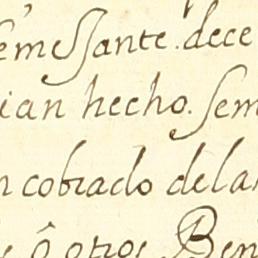 semessante. dece
ian hecho. sem
n cobrado dela
s ô otros Ben